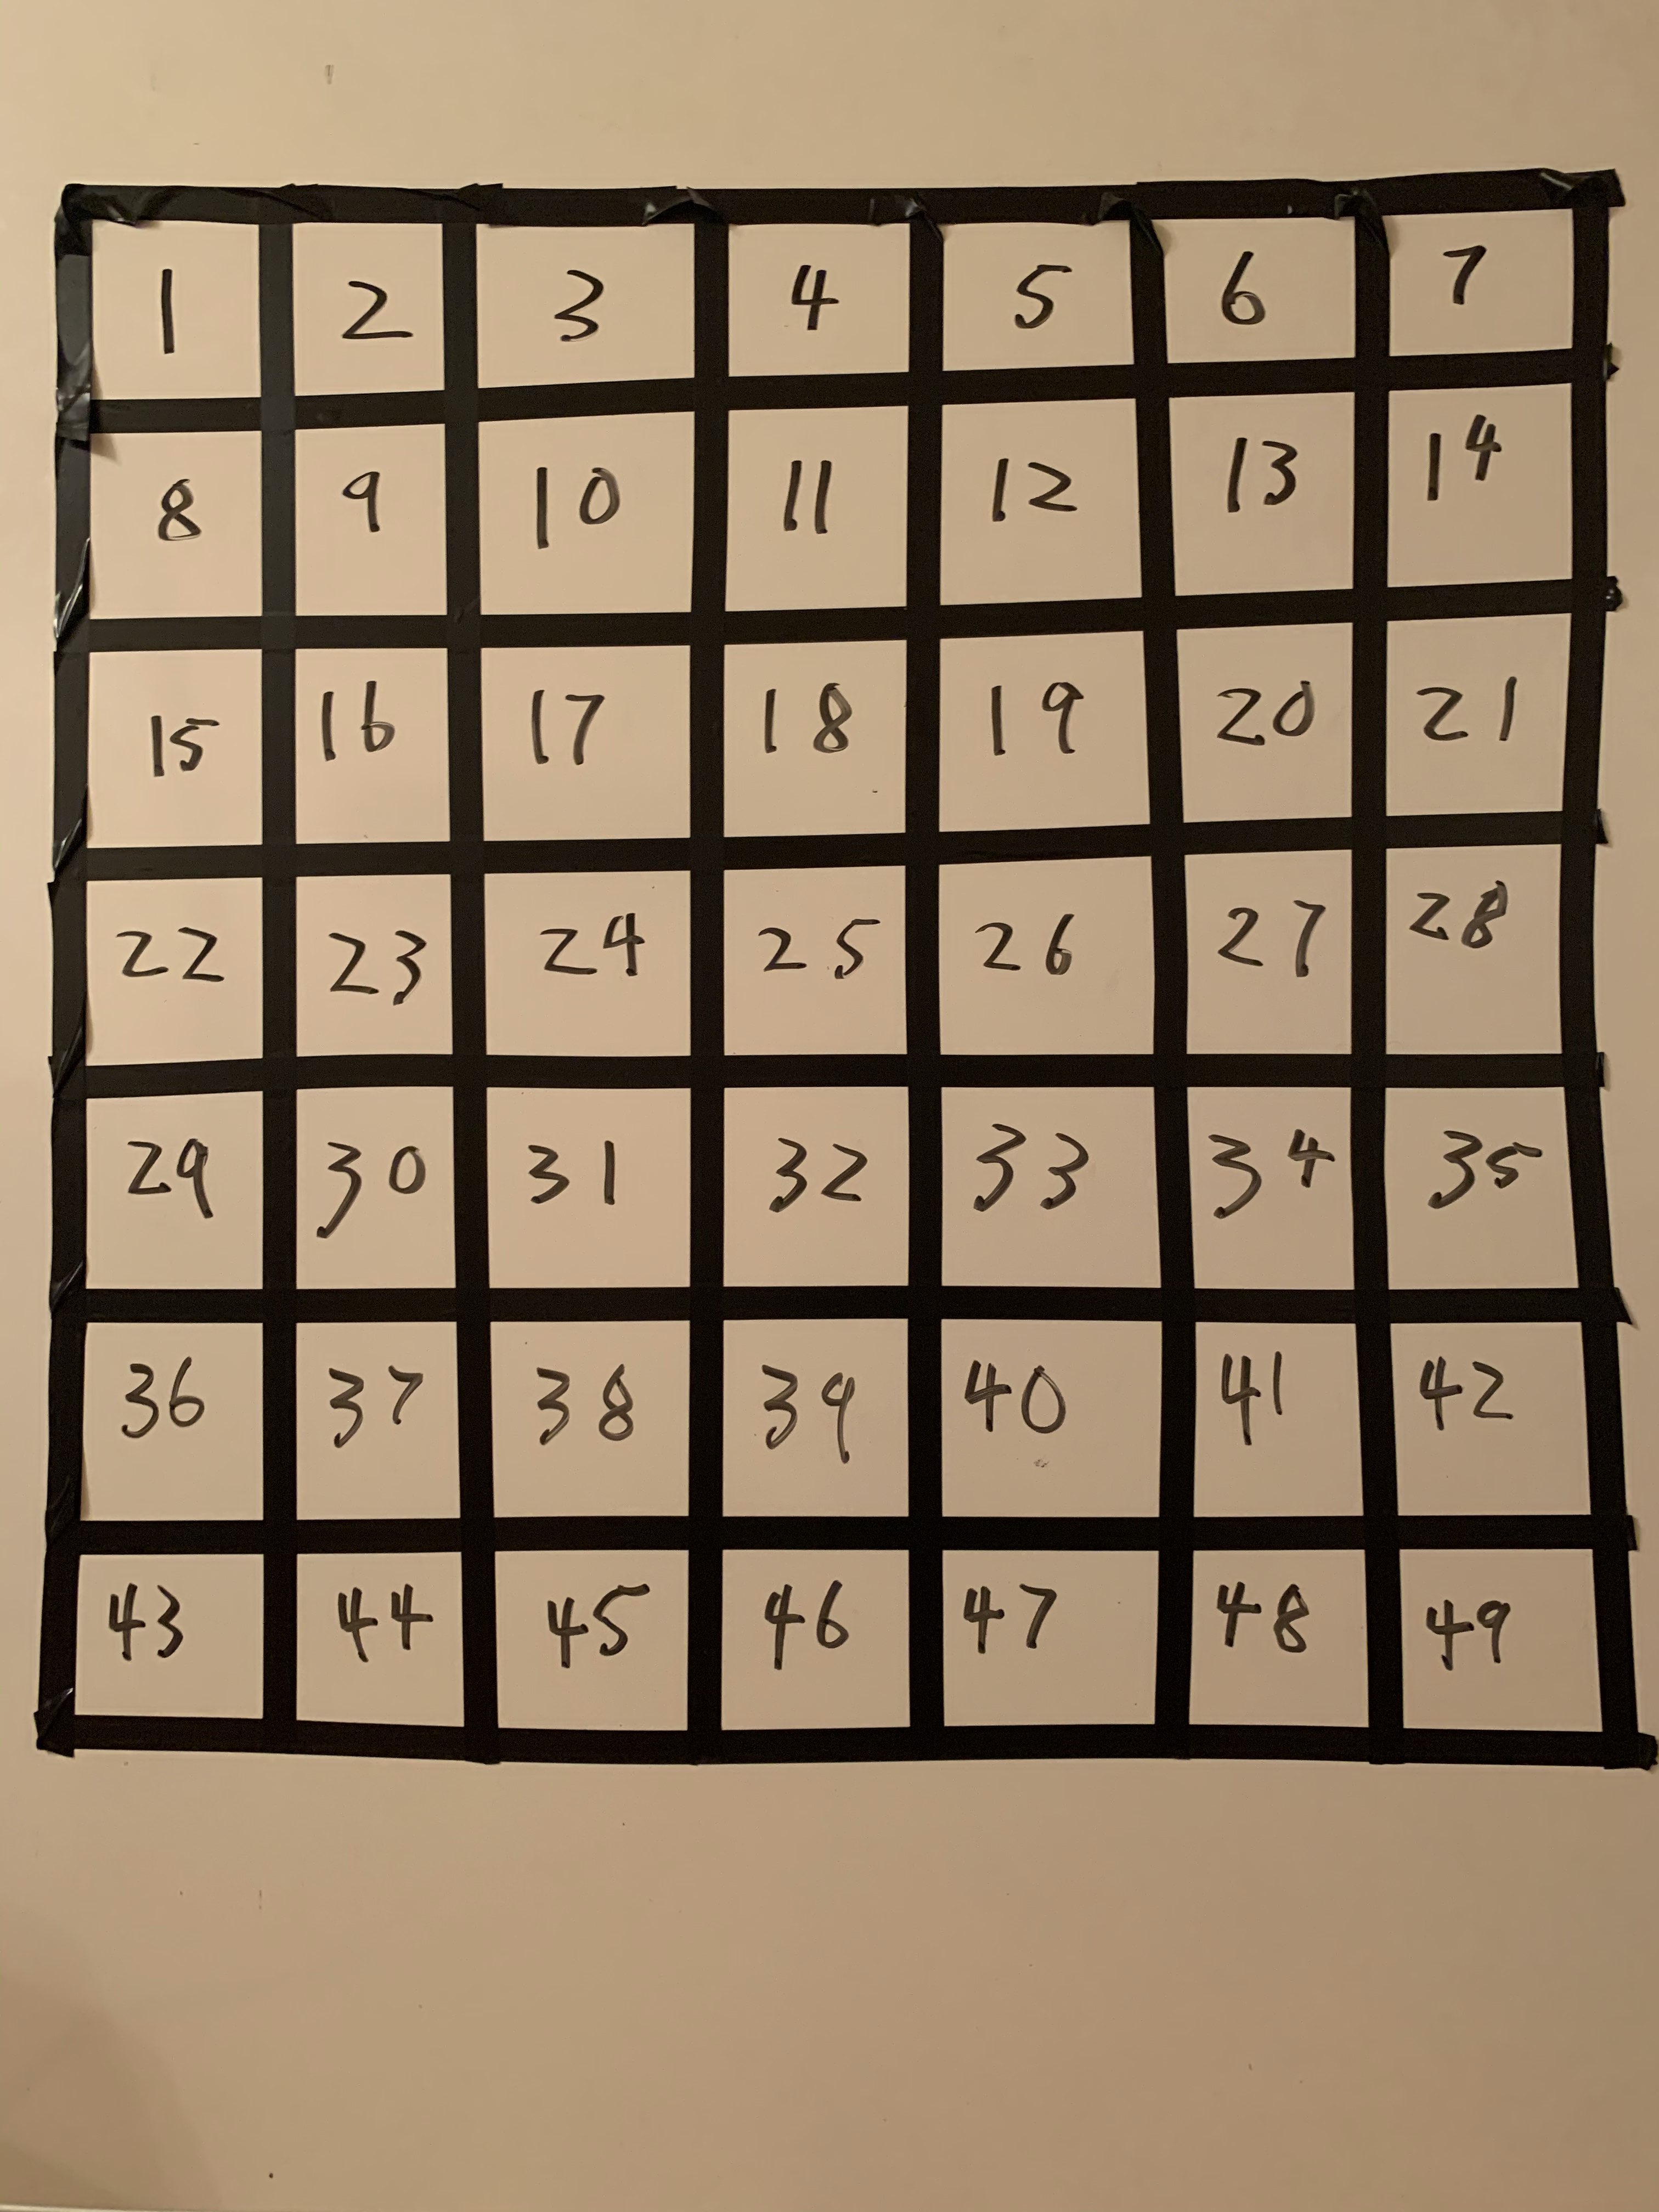 1 2 3 4 5 6 7
8 9 10 11 12 13 14
15 16 17 18 19 20 21
22 23 24 25 26 27 28
29 30 31 32 33 34 35
36 37 38 39 40 41 42
43 44 45 46 47 48 49